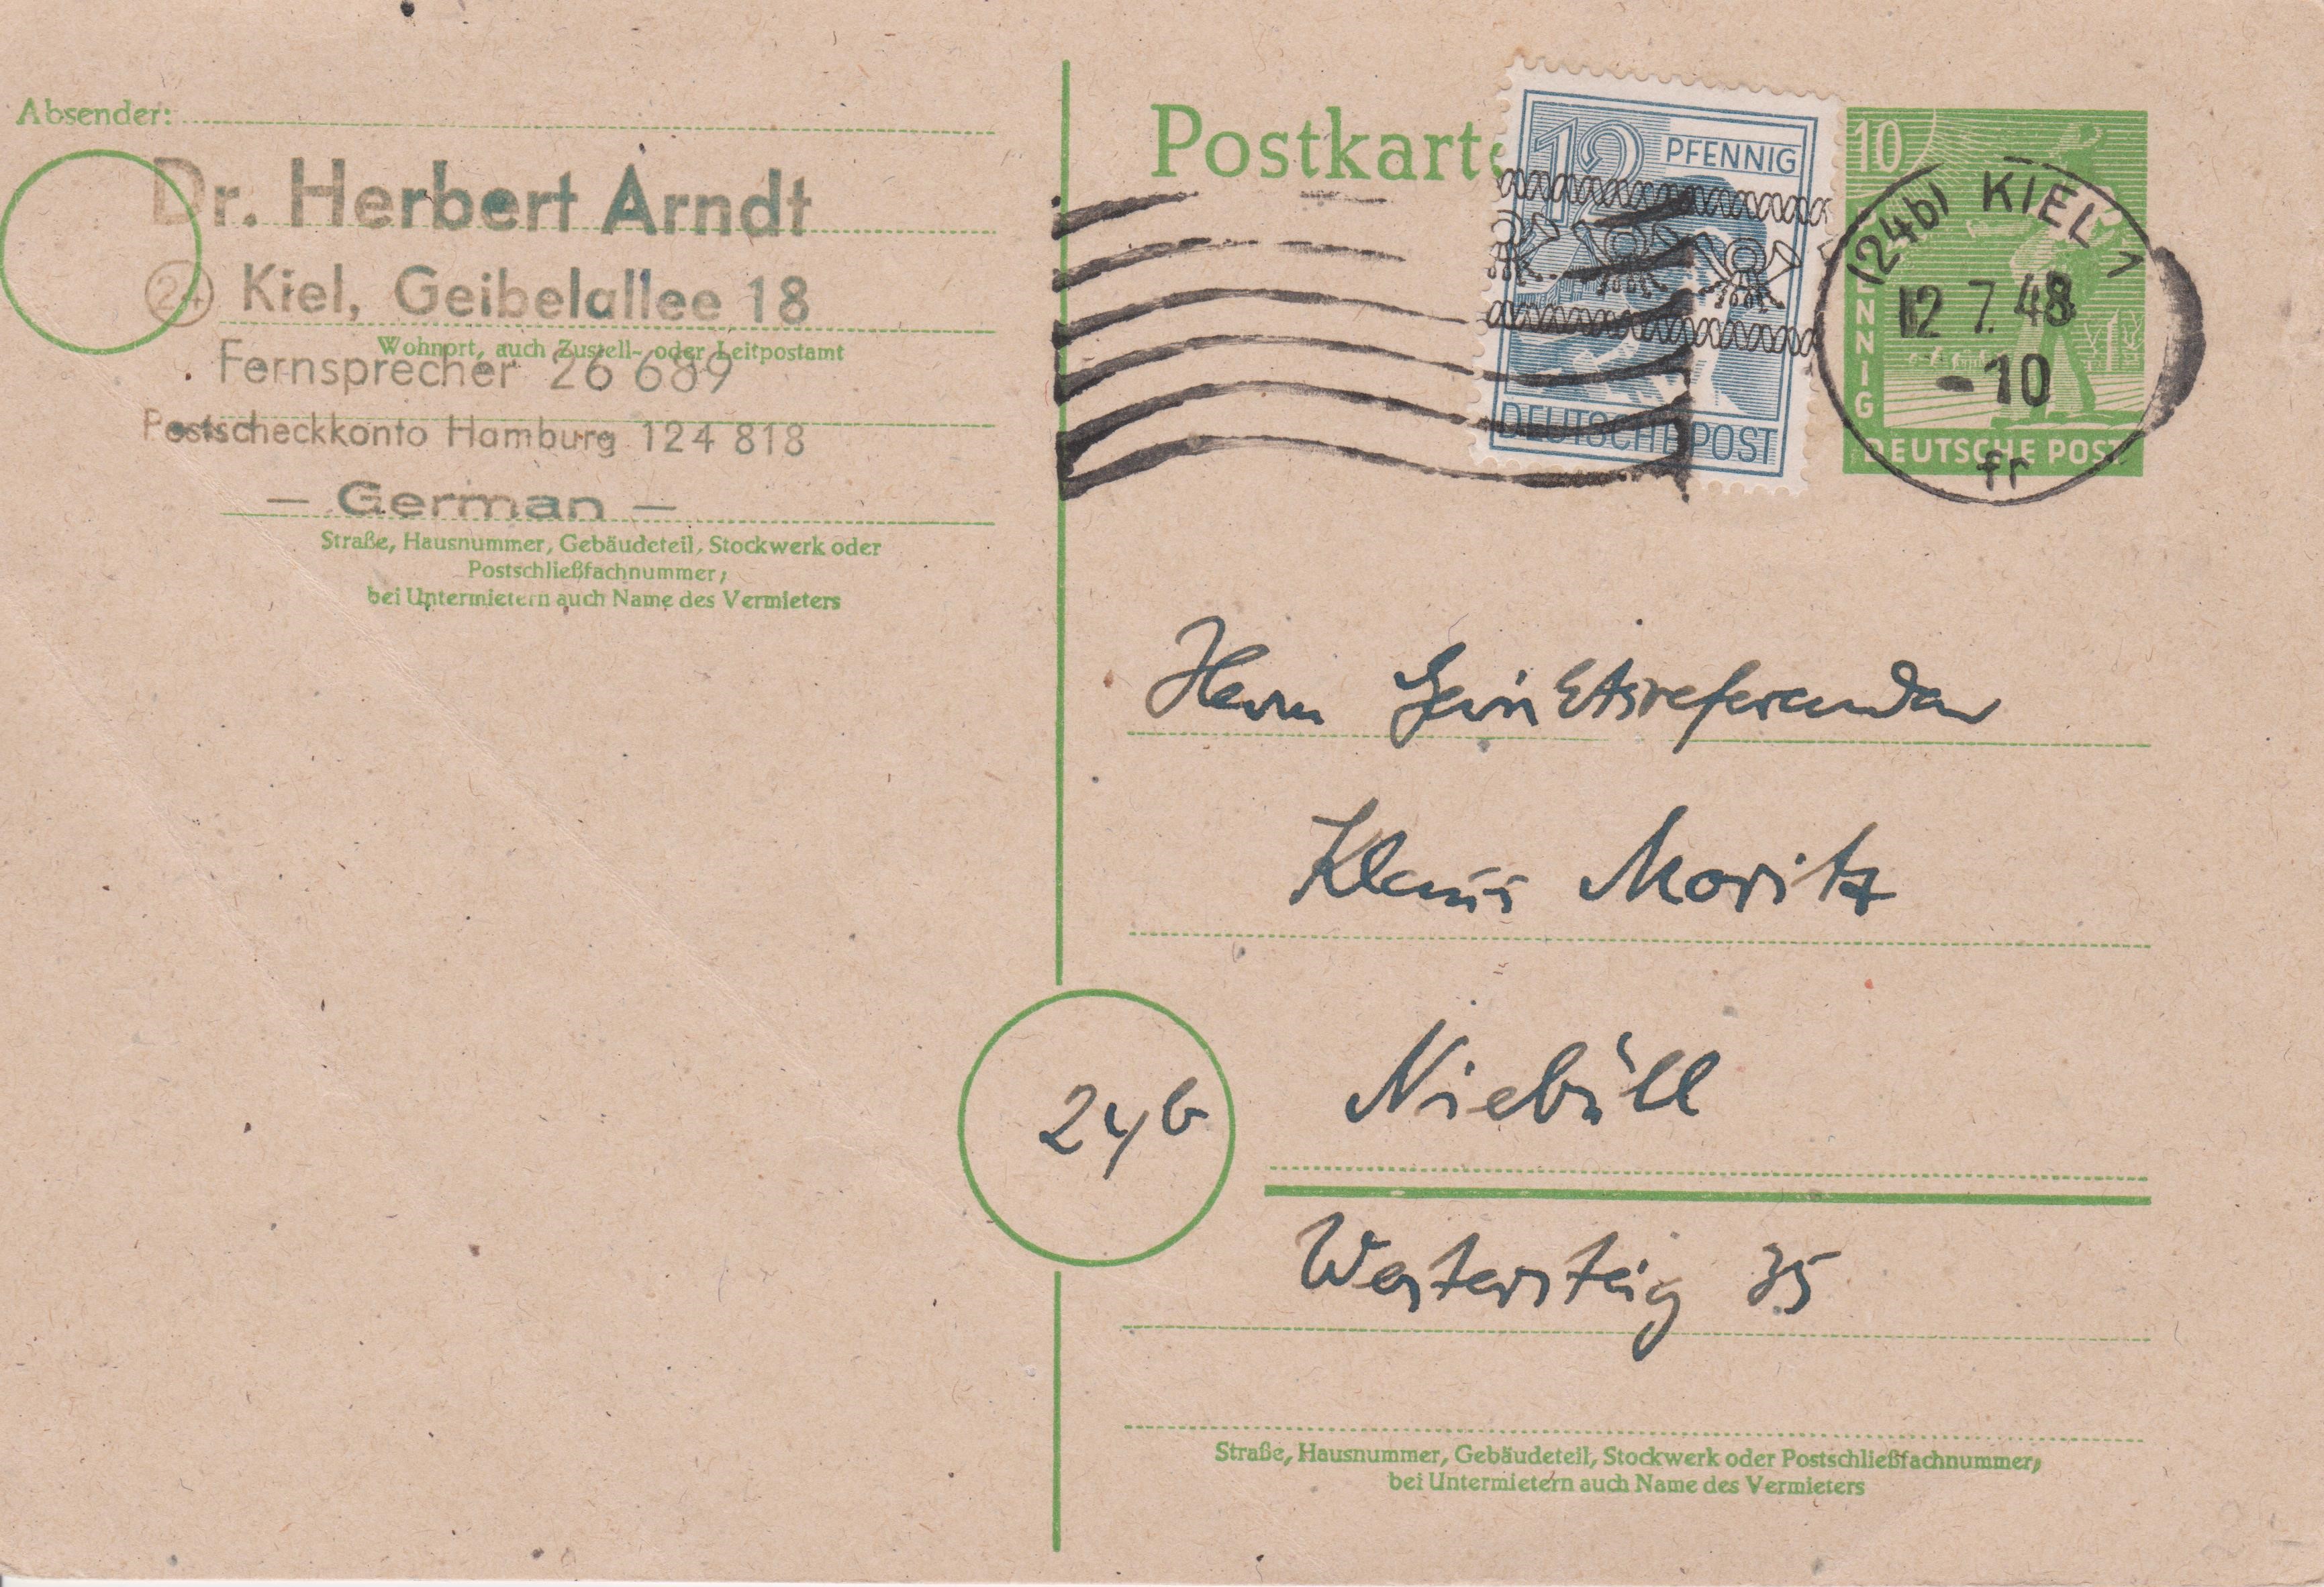 Absender:
Dr. Herbert Arndt
24 Kiel, Geibelallee 18
Wohnort, auch Zustell- oder Leitpostamt
Fernsprecher 26 689
Postscheckkonto Hamburg 124 818
— German —
Straße, Hausnummer, Gebäudeteil, Stockwerk oder
Postschließfachnummer;
bei Untermietern auch Name des Vermieters
Postkarte
12 PFENNIG
DEUTSCHE POST
10
PFENNIG
DEUTSCHE POST
(24b) KIEL 1
12.7.48
-10
fr
Herrn Gerichtsreferendar
Klaus Moritz
24b
Niebüll
Westersteig 35
Straße, Hausnummer, Gebäudeteil, Stockwerk oder Postschließfachnummer;
bei Untermietern auch Name des Vermieters